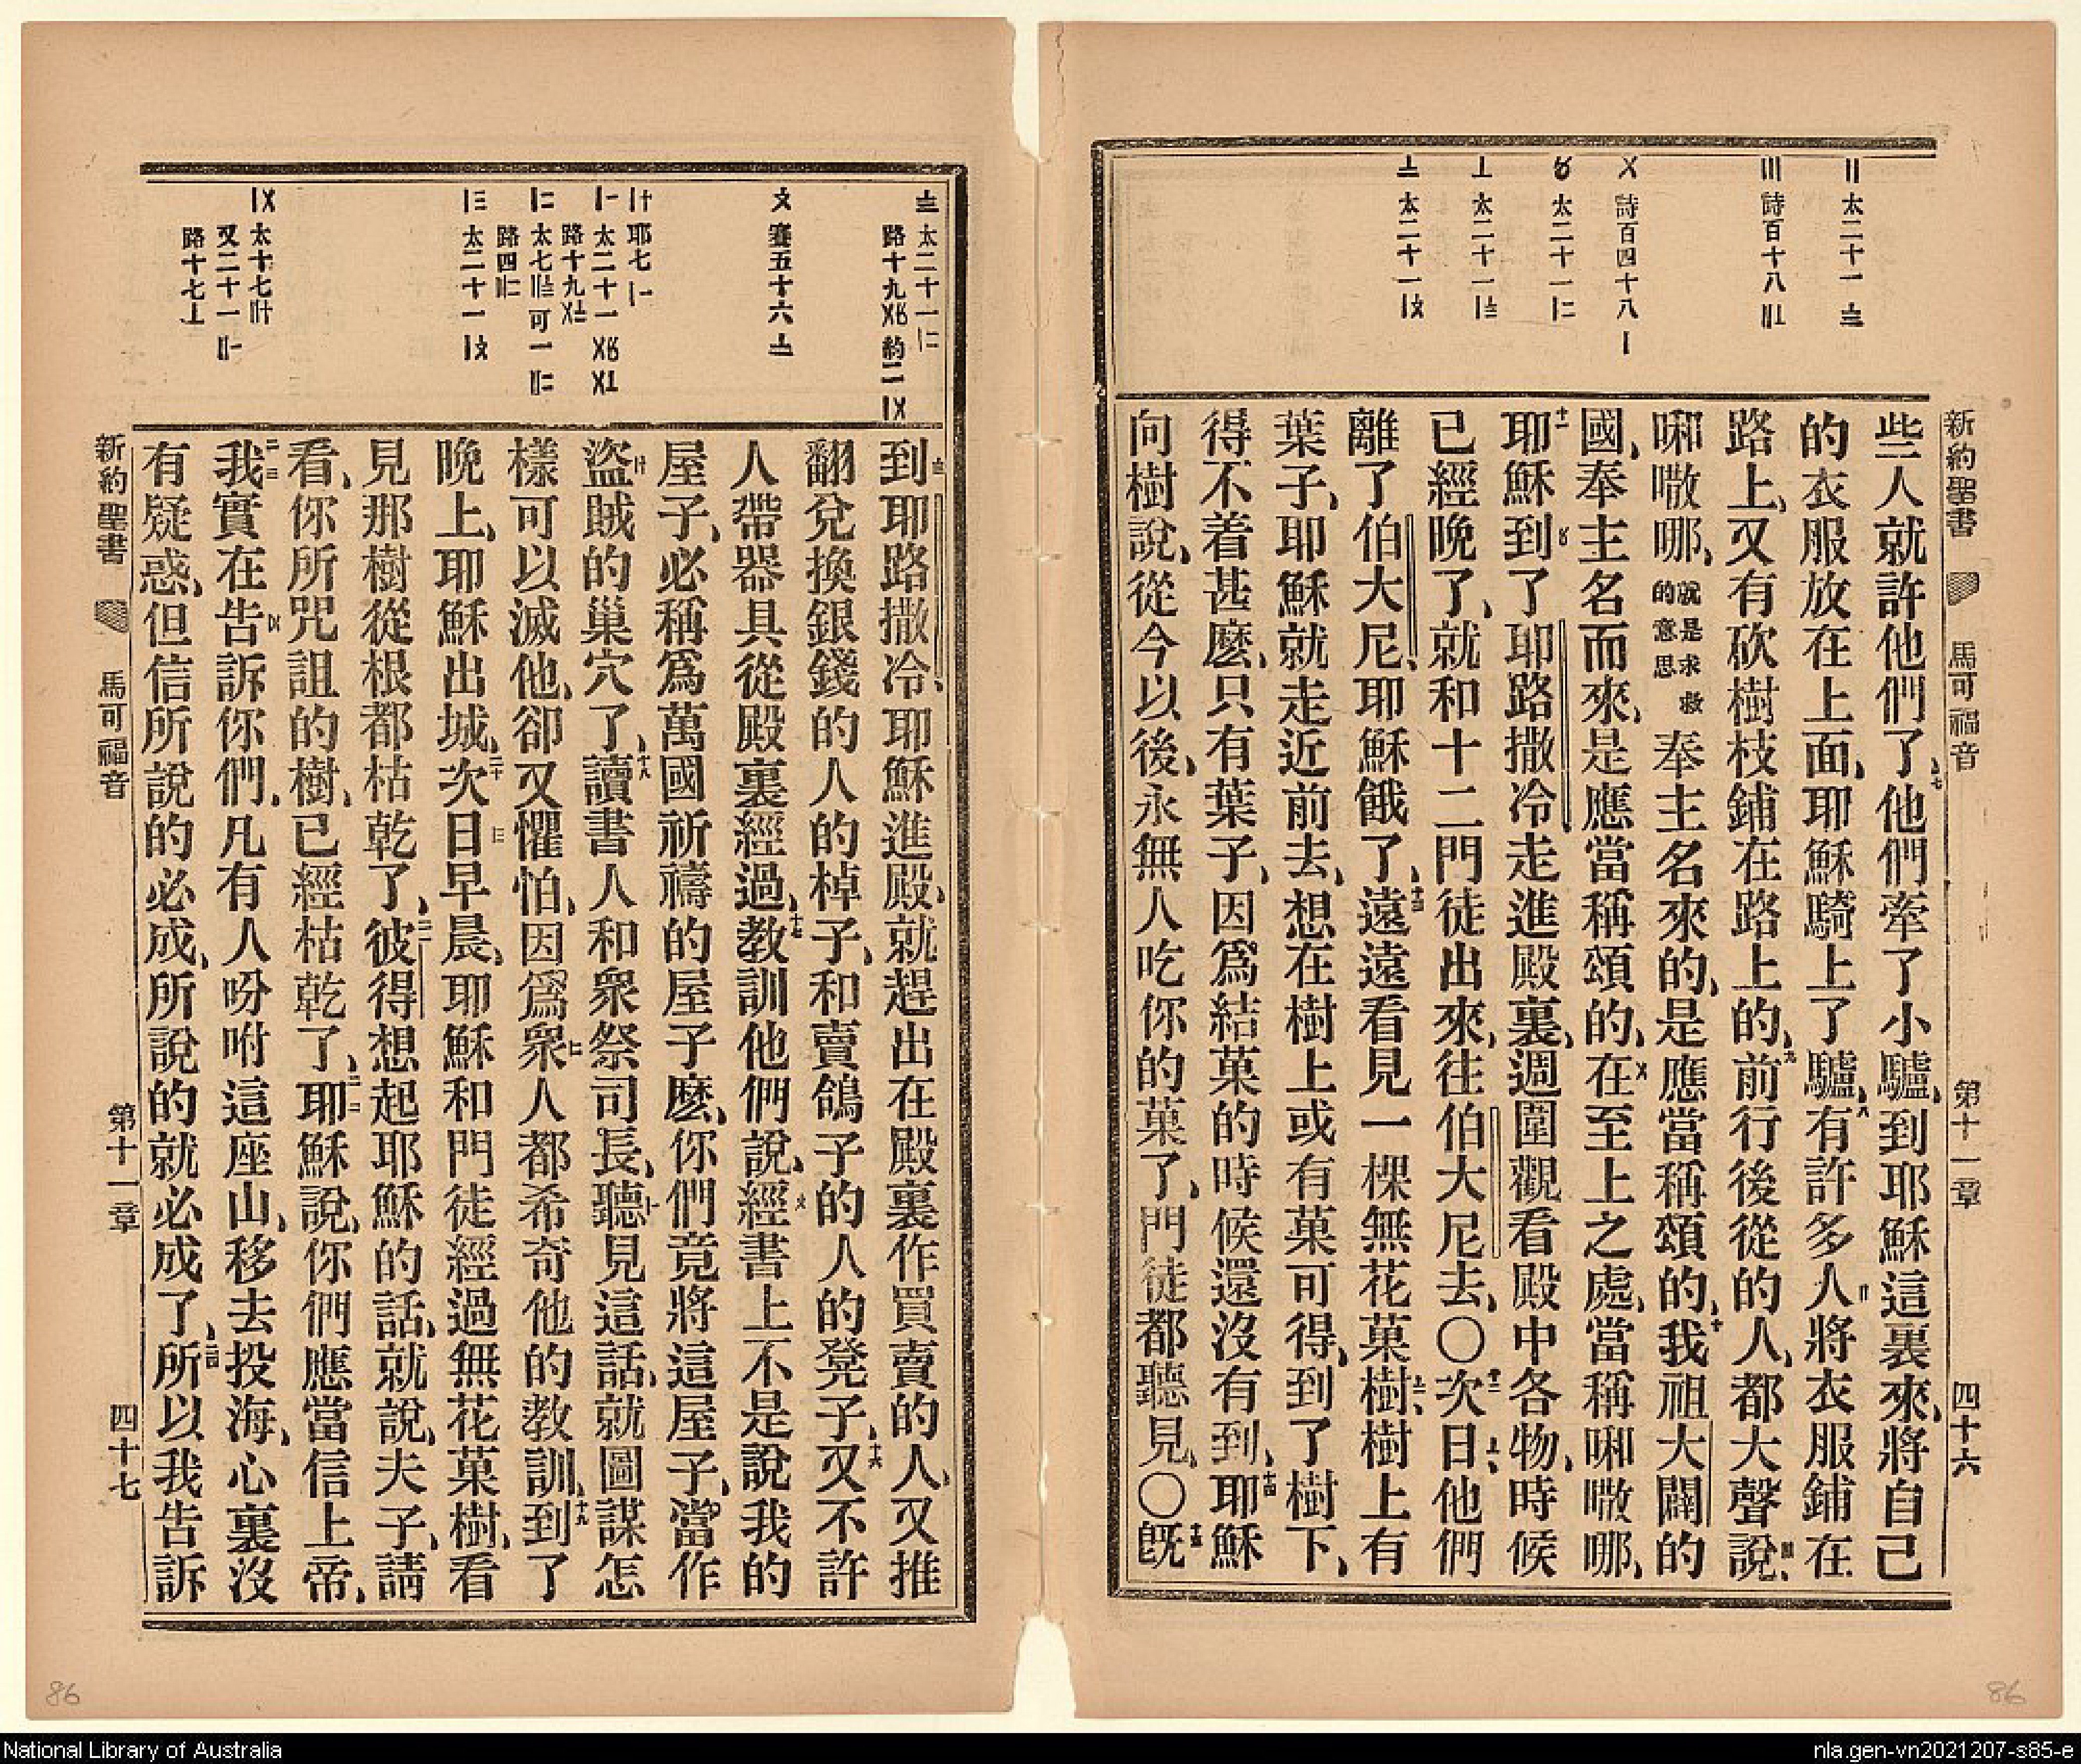 新約聖書 馬可福音 第十一章 四十六
〢 太二十一 〨
〣 詩百十八 〢〦
〤 詩百四十八 〡
〥 太二十一 〡二
〦 太二十一 〡〨
〧 太二十一 〡〩
些人就許他們了、七他們牽了小驢、到耶穌這裏來、將自己
的衣服放在上面、耶穌騎上了驢、八有許多人〢將衣服鋪在
路上、又有砍樹枝鋪在路上的、九前行後從的人、都大聲說、〣
㖠㗐哪、就是求救的意思奉主名來的、是應當稱頌的、十我祖大闢的
國、奉主名而來、是應當稱頌的、在〤至上之處、當稱㖠㗐哪、
十一耶穌到〥了耶路撒冷走進殿裏、週圍觀看殿中各物、時候
已經晚了、就和十二門徒出來、往伯大尼去、〇十二次日、〦他們
離了伯大尼、耶穌餓了、十三遠遠看見一棵無花菓樹、樹上有
葉子、耶穌就走近前去、想在樹上或有菓可得、到了樹下、
得不着甚麽、只有葉子、因爲結菓的時候還沒有到、十四耶穌
向樹說、從今以後、永無人吃你的菓了、門徒都聽見、〇十五旣
〨 太二十一〡二
路十九〤〥 約二〡〤
〩 賽五十六〧
〡十 耶七〡〡
〡一 太二十一〤〥 〤〦
路十九〤〨
〡二 太七〢〨 可一〢二
路四〣二
〡三 太二十一〡〩
〡〤 太十七〢十
又二十一〢一
路十七〦
到〨耶路撒冷、耶穌進殿、就趕出在殿裏作買賣的人、又推
翻兌換銀錢的人的棹子、和賣鴿子的人的凳子、十六又不許
人帶器具從殿裏經過、十七教訓他們說、經〩書上不是說我的
屋子、必稱爲萬國祈禱的屋子麽、你們竟將這屋子、當作
盜〡十賊的巢穴了、十八讀書人和衆祭司長、聽〡一見這話、就圖謀怎
樣可以滅他、卻又懼怕、因爲衆〡二人都希奇他的教訓、十九到了
晚上、耶穌出城、二十次日〡三早晨、耶穌和門徒經過無花菓樹、看
見那樹從根都枯乾了、二一彼得想起耶穌的話、就說、夫子、請
看、你所咒詛的樹、已經枯乾了、二二耶穌說、你們應當信上帝、
二三我實在告〡〤訴你們、凡有人吩咐這座山、移去投海、心裏沒
有疑惑、但信所說的必成、所說的就必成了、二四所以我告訴
新約聖書 馬可福音 第十一章 四十七
86
86
National Library of Australia
nla.gen-vn2021207-s85-e